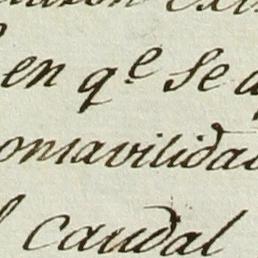 en qᵉ se
onsavilidad
caudal